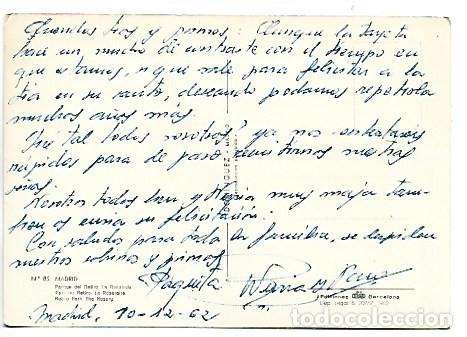 Queridos tíos y primos: Aunque la tarjeta
hace un mucho de contraste con el tiempo en
que estamos, vale para felicitar a la
tía en su santo, deseando podamos repetirla
muchos años más.
Qué tal todos vosotros? ya nos contaréis
para de paso nuestras
Nosotros todos bien y muy maja tam-
bien os envía su felicitación.
Con saludos para toda la familia, se despiden
vuestros sobrinos y primos
Paquita
Nº 85 MADRID
Parque del Retiro. La Rosaleda
Parc du Retiro. La Roseraie
Retiro Park. The Rosery
Ediciones Barcelona
Dep. Legal B.
Madrid, 10-12-62
todocoleccion